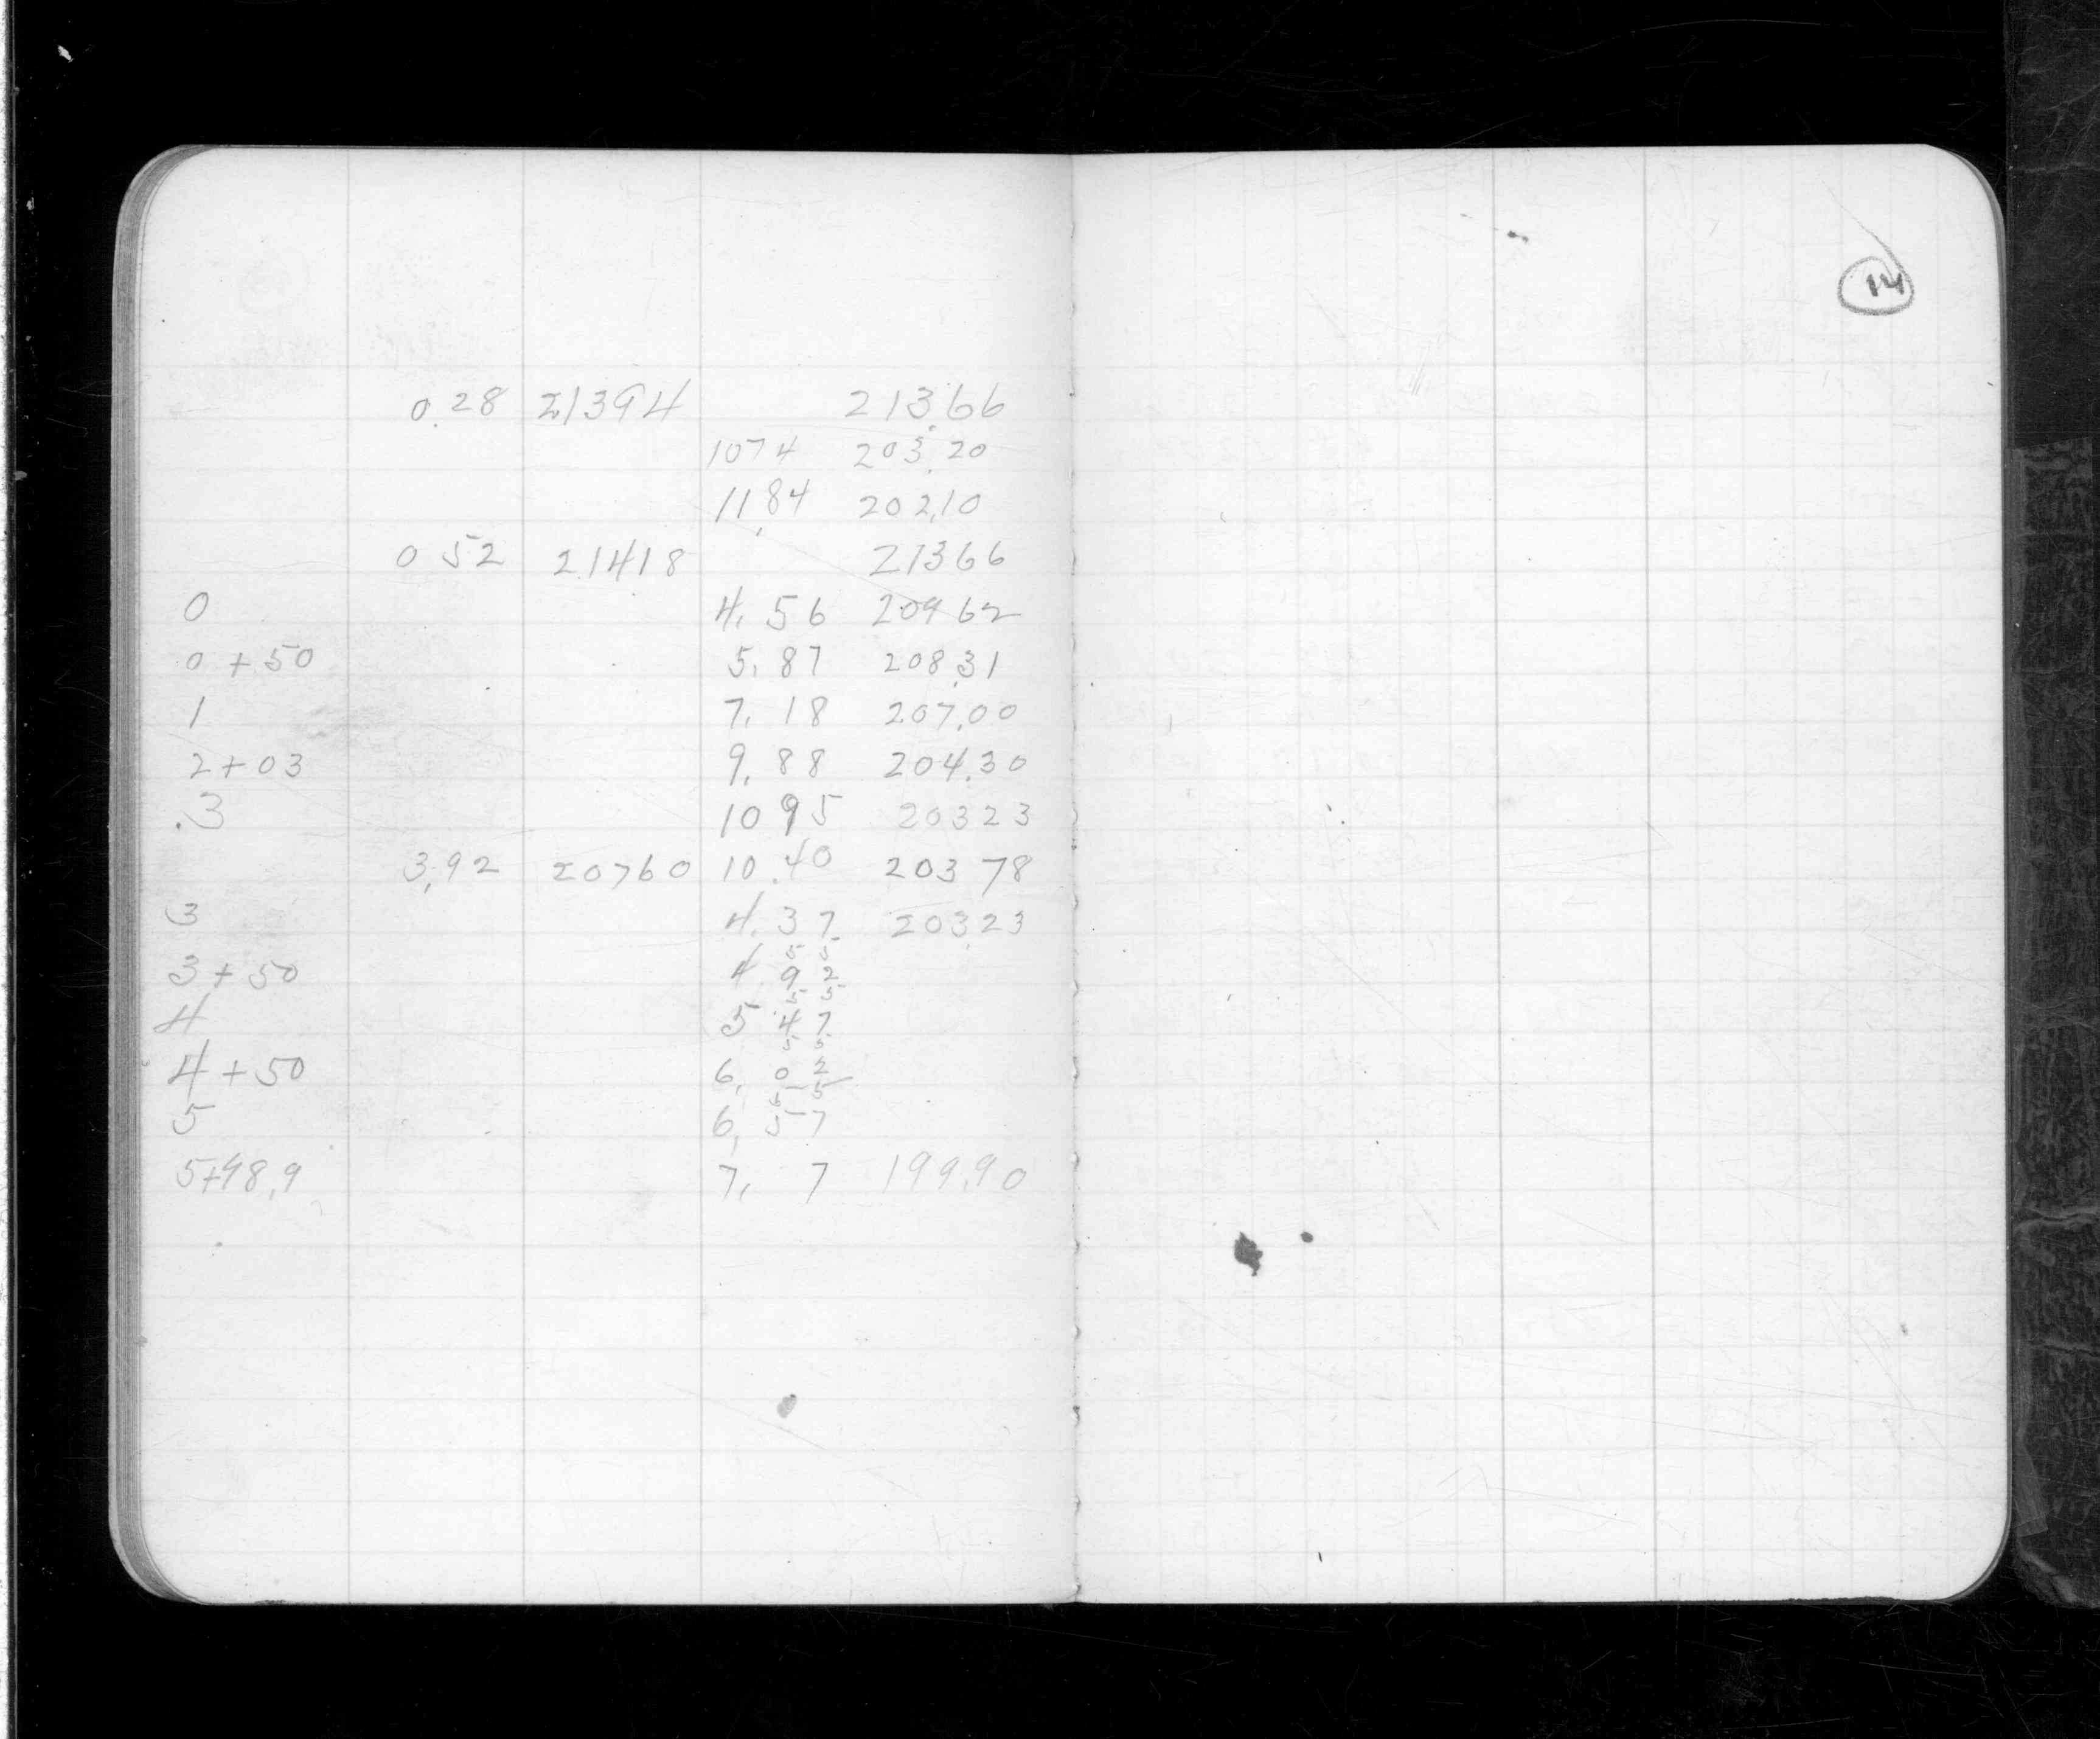 14
0.28 21394 213.66
1074 203.20
11.84 202.10
0 52 21418 21366
0 4.56 20962
0 + 50 5.87 208.31
1 7.18 207.00
2 + 03 9.88 204.30
.3 10 95 20323
3.92 20760 10.40 203 78
3 4.37 203.23
5 5
3 + 50 4 92
5 5
4 5 47
5 5
4 + 50 6.02
5 5
5 6.57
5+98.9 7. 7 199.90